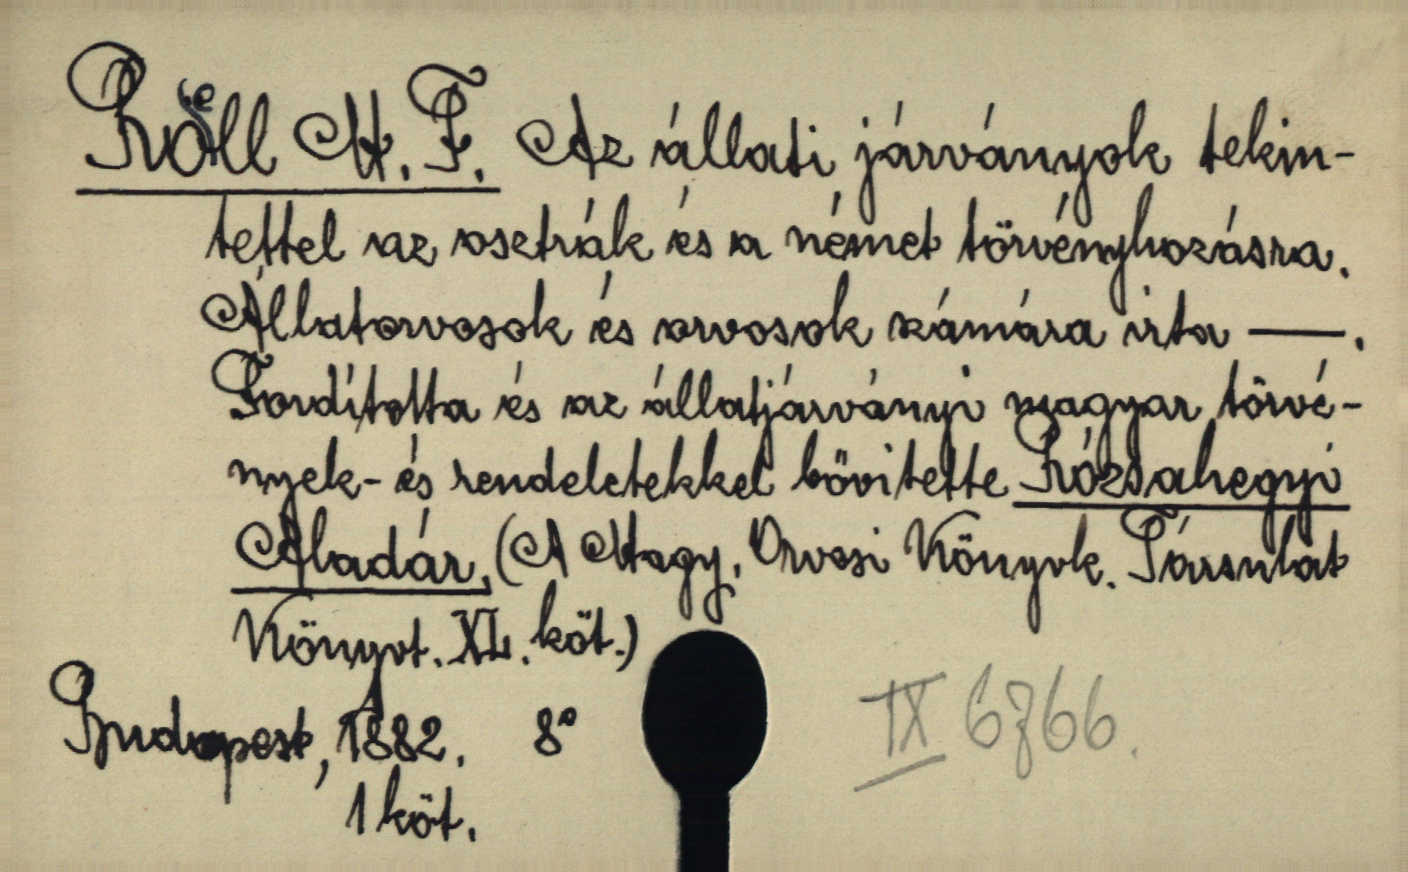 Röll M. F. Az állati járványok tekin-
tettel az osztrák és a német törvényhozásra.
Állatorvosok és orvosok számára irta —.
Fordította és az állatjárványi magyar törvé-
nyek- és rendeletekkel bövitette Rózsahegyi
Aladár. (A Magy. Orvosi Könyvk. Társulat
Könyvt. XL. köt.)
Budapest, 1882. 8°
IX 6766.
1 köt.